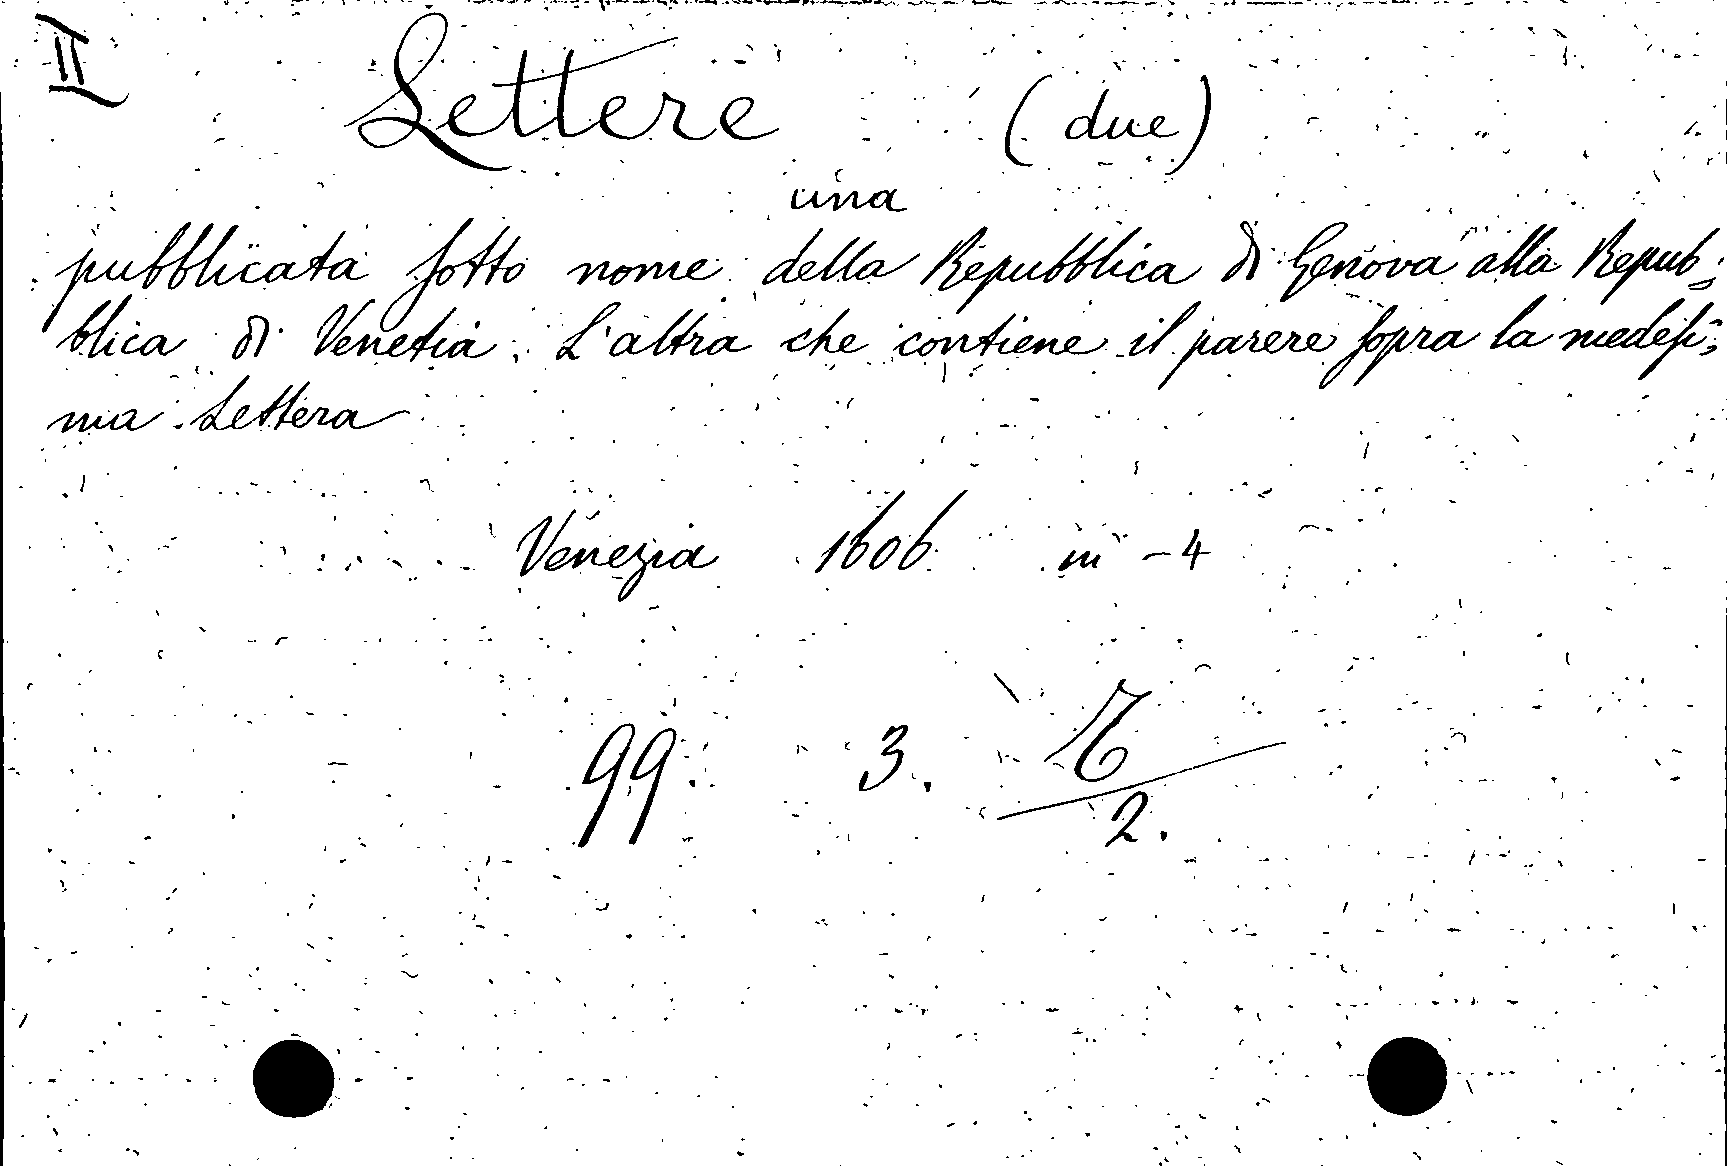 II
Lettere (due)
una
pubblicata ſotto nome della Repubblica di Genova alla Repub:
blica di Venetia. L'altra che contiene il parere ſopra la medeſi:
ma Lettera
Venezia 1606 in -4
99. 3.
2.